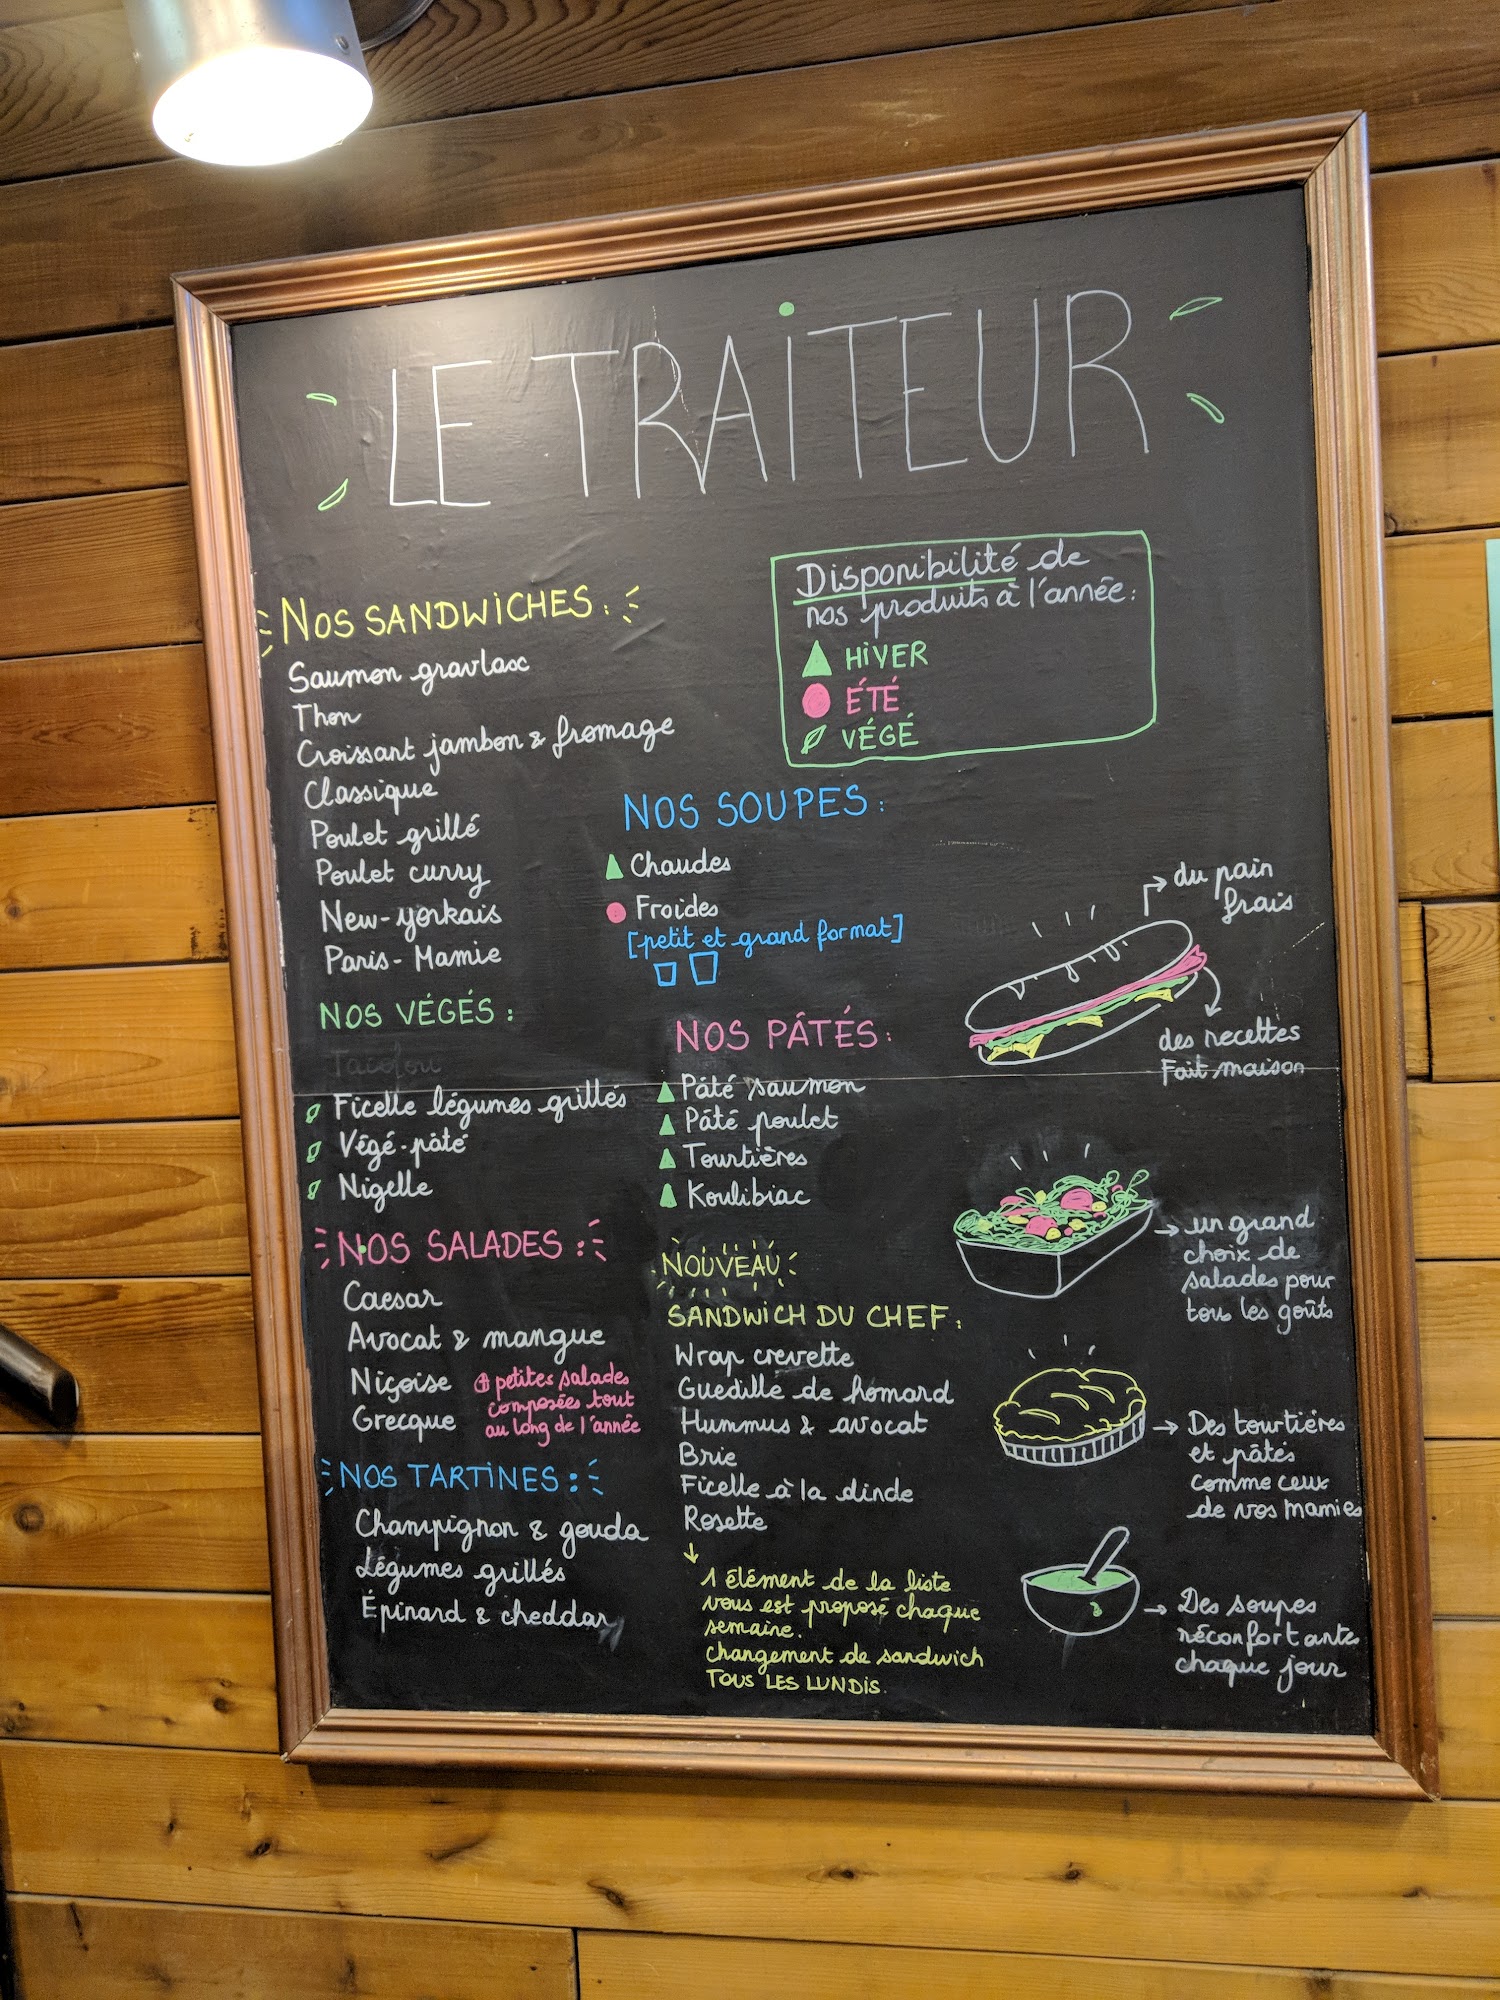 LE TRAITEUR
Disponibilité de
nos produits à l'année:
HIVER
ÉTÉ
VÉGÉ
NOS SANDWICHES:
Saumon gravlax
Thon
Croissant jambon & fromage
Classique
Poulet grillé
Poulet curry
New-yorkais
Paris-Mamie
NOS VÉGÉS:
Ficelle légumes grillés
Végé-pâté
Nigelle
NOS SALADES:
Caesar
Avocat & mangue
Niçoise
Grecque
⊕ petites salades
composées tout
au long de l'année
NOS TARTINES:
Champignon & gouda
Légumes grillés
Épinard & cheddar
NOS SOUPES:
Chaudes
Froides
[petit et grand format]
NOS PÂTÉS:
Pâté saumon
Pâté poulet
Tourtières
Koulibiac
NOUVEAU
SANDWICH DU CHEF:
Wrap crevette
Guedille de homard
Hummus & avocat
Brie
Ficelle à la dinde
Rosette
↓
1 élément de la liste
vous est proposé chaque
semaine.
changement de sandwich
TOUS LES LUNDIS.
du pain
frais
des recettes
Fait maison
un grand
choix de
salades pour
tous les goûts
Des tourtières
et pâtés
comme ceux
de vos mamies
Des soupes
réconfortantes
chaque jour